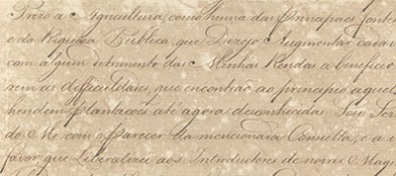 Prezo a Agricultura, como huma das Principaes fontes
e da Riqueza Publica, que Dezejo Augmentar cada vez
com algum detrimento das Minhas Rendas a beneficio
rem as difficuldades, que encontrão ao principio aquel
hendem Plantações até agora desconhecidas Sou Ser
do Me com o Parecer da mencionada Consulta, e a
favor, que Liberalizei aos Introductores de novas Maqui